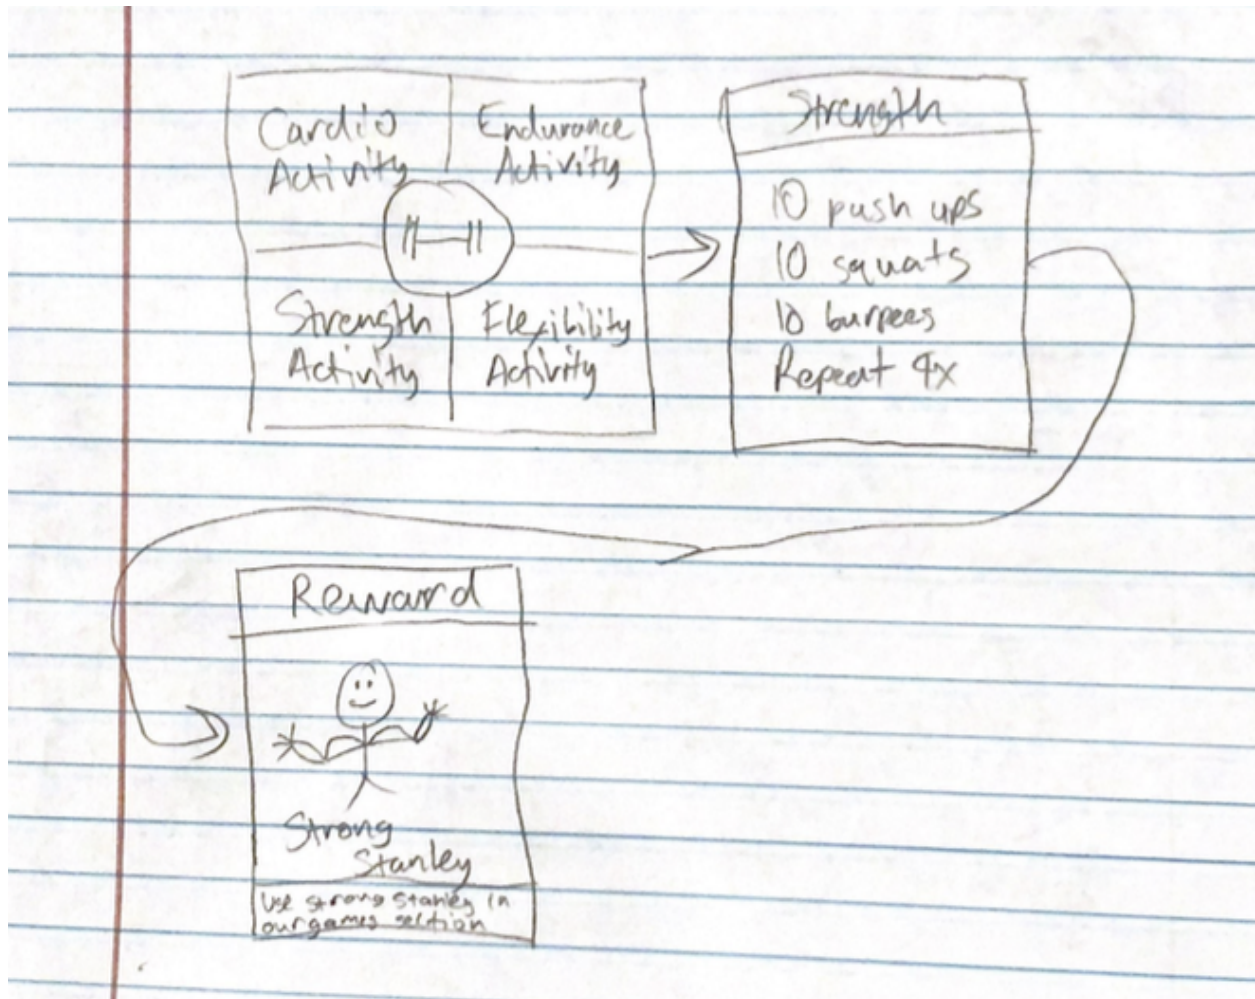 Cardio
Activity
Endurance
Activity
Strength
Activity
Flexibility
Activity
Strength
10 push ups
10 squats
10 burpees
Repeat 4x
Reward
Strong
Stanley
Use strong Stanley in
our games section